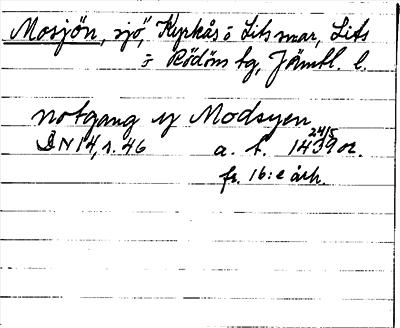 Mosjön, sjö, Kyrkås o Lits snar, Lits
o Rödöns tg, Jämtl. l.
notgang y Modsyen
DN 14, s. 46 a. f. 24/5 1439 or.
fr. 16:e årh.